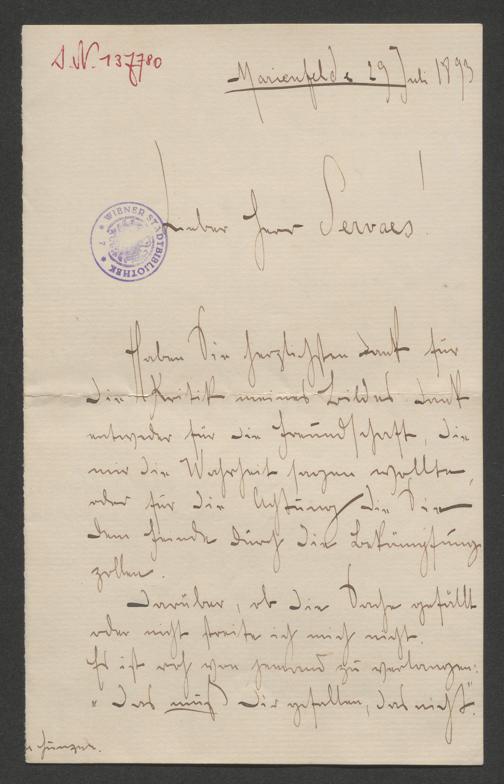 J.N. 137780
Marienfelde 29 Juli 1893
WIENER STADTBIBLIOTHEK
* 7 *
Lieber Herr Servaes!
Haben Sie herzlichsten Dank für
die Kritik meines Bildes Dank
entweder für die Freundschaft, die
mir die Wahrheit sagen wollte,
oder für die Achtung die Sie
dem Feinde durch die Bekämpfung
zollen.
Darüber, ob die Sache gefällt
oder nicht streite ich mich nicht.
Es ist roh von jemand zu verlangen:
"das muß dir gefallen, das nicht".